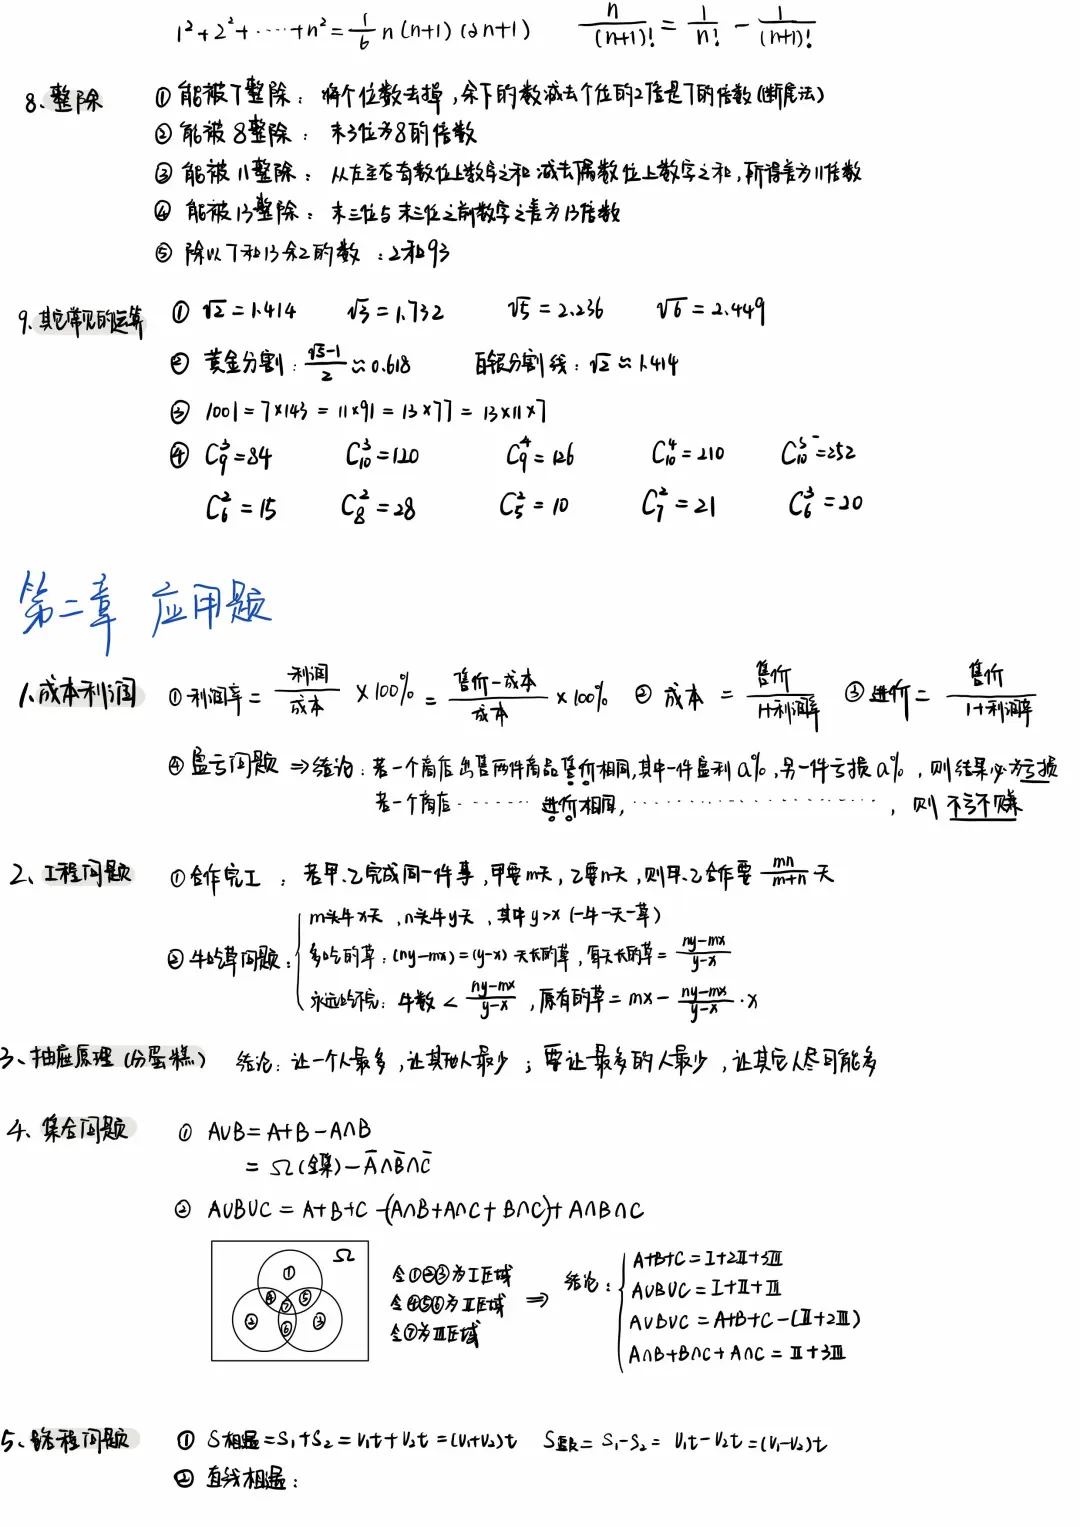 1²+2²+……+n²=1/6 n(n+1)(2n+1)    n/(n+1)! = 1/n! - 1/(n+1)!
8、整除 ① 能被7整除：将个位数去掉,余下的数减去个位的2倍是7的倍数(断尾法)
② 能被8整除：末3位为8的倍数
③ 能被11整除：从左至右奇数位上数字之和减去偶数位上数字之和,所得差为11倍数
④ 能被13整除：末三位与末三位之前数字之差为13倍数
⑤ 除以7和13余2的数：2和93
9.其它常见的运算 ① √2=1.414    √3=1.732    √5=2.236    √6=2.449
② 黄金分割：(√5-1)/2≈0.618    白银分割线：√2≈1.414
③ 1001=7×143=11×91=13×77=13×11×7
④ C₉³=84    C₁₀³=120    C₉⁴=126    C₁₀⁴=210    C₁₀⁵=252
C₆²=15    C₈²=28    C₅²=10    C₇²=21    C₆³=20
第二章 应用题
1.成本利润 ①利润率=利润/成本×100%=(售价-成本)/成本×100% ②成本=售价/(1+利润率) ③进价=售价/(1+利润率)
④盈亏问题⇒结论：若一个商店出售两件商品售价相同,其中一件盈利a%,另一件亏损a%,则结果必为亏损
若一个商店……进价相同,……………………,则不亏不赚
2、工程问题 ①合作完工：若甲、乙完成同一件事,甲要m天,乙要n天,则甲、乙合作要mn/(m+n)天
m头牛x天,n头牛y天,其中y>x(一牛一天一草)
②牛吃草问题：多吃的草：(ny-mx)=(y-x)天长的草,每天长的草=(ny-mx)/(y-x)
永远吃不完：牛数<(ny-mx)/(y-x),原有的草=mx-(ny-mx)/(y-x)·x
3、抽屉原理(分蛋糕) 结论：让一个人最多,让其他人最少；要让最多的人最少,让其它人尽可能多
4、集合问题 ① A∪B=A+B-A∩B
=Ω(全集)-A̅∩B̅∩C̅
② A∪B∪C=A+B+C-(A∩B+A∩C+B∩C)+A∩B∩C
Ω
①
④ ⑦ ⑤
② ⑥ ③
令①②③为Ⅰ区域
令④⑤⑥为Ⅱ区域
令⑦为Ⅲ区域
⇒ 结论：
A+B+C=Ⅰ+2Ⅱ+3Ⅲ
A∪B∪C=Ⅰ+Ⅱ+Ⅲ
A∪B∪C=A+B+C-(Ⅱ+2Ⅲ)
A∩B+B∩C+A∩C=Ⅱ+3Ⅲ
5、路程问题 ① S相遇=S₁+S₂=V₁t+V₂t=(V₁+V₂)t    S追及=S₁-S₂=V₁t-V₂t=(V₁-V₂)t
② 直线相遇：